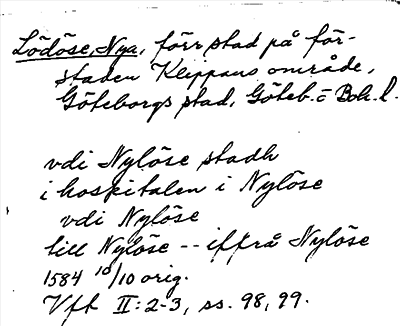 Lödöse, Nya, förr stad på för-
staden Klippans område,
Göteborgs stad, Göteb. o Boh. l.
vdi Nylöse stadh
i hospitalen i Nylöse
vdi Nylöse
till Nylöse -- iffrå Nylöse
1584 10/10 orig.
Vfk II: 2-3, ss. 98, 99.